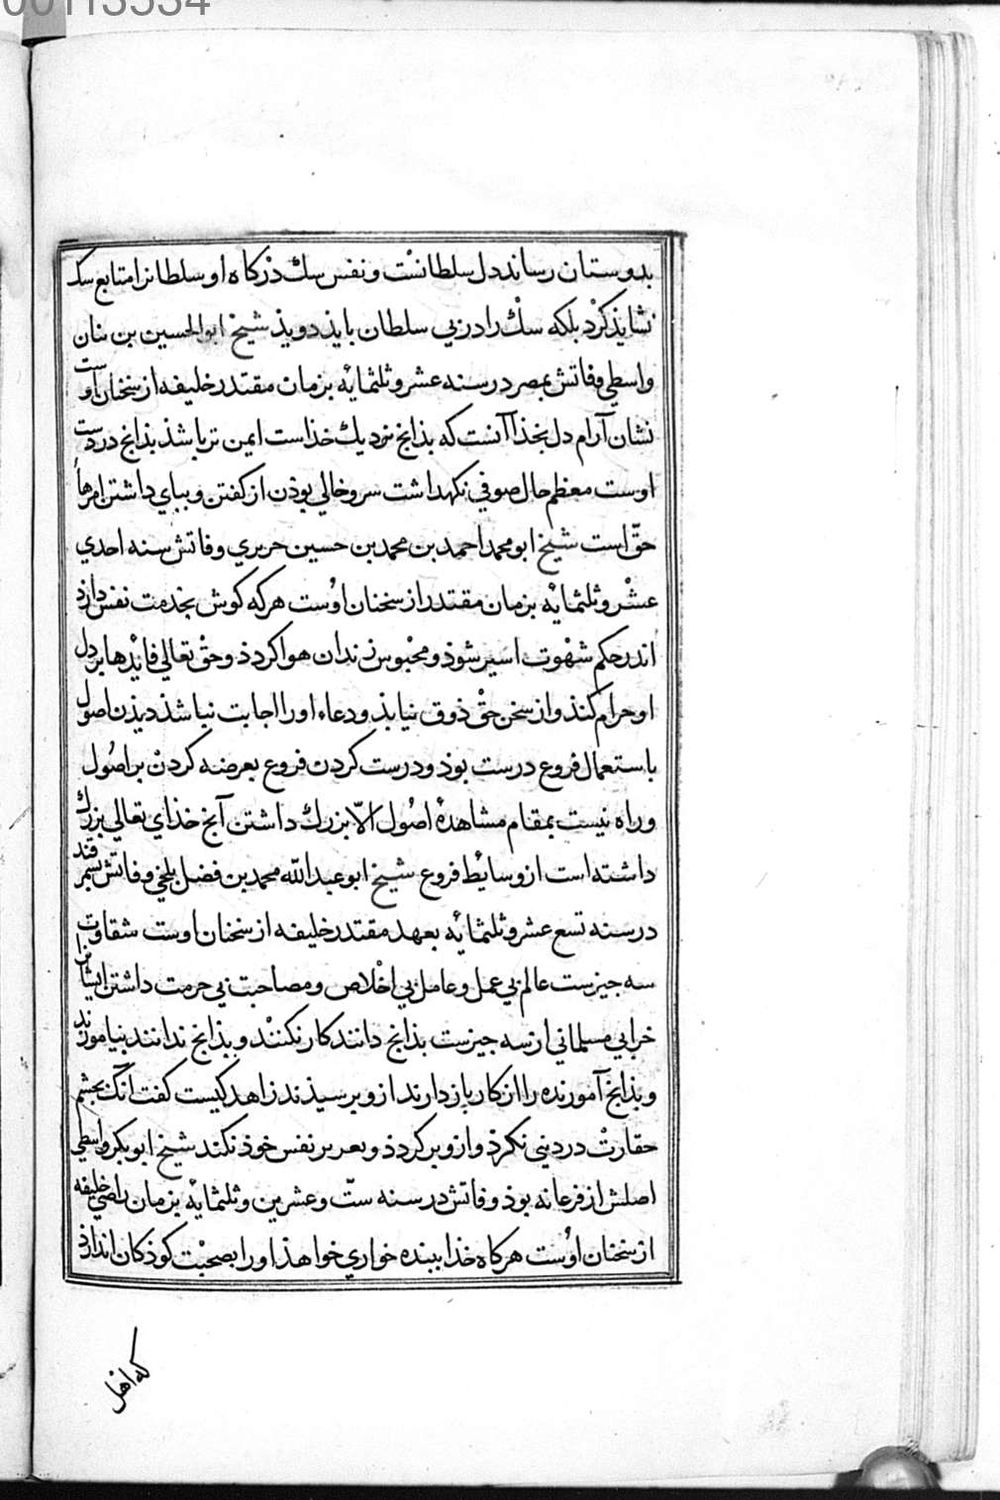 00113534
بدوستان رساند دل سلطانست و نفس سك درکاه او سلطانرا متابع سك
نشایذ کرد بلکه سك را درپی سلطان بایذ دویذ شیخ ابوالحسین بن بنان
واسطی وفاتش بمصر در سنه عشر و ثلثمایه بزمان مقتدر خلیفه از سخنان اوست
نشان آرام دل بخذا آنست که بذانج نزدیك خذاست ایمن تر باشذ بذانج در دست
اوست معظم حال صوفی نکهداشت سر و خالی بوذن از کفتن و ببای داشتن امرهاء
حق است شیخ ابو محمد احمد بن محمد بن حسین حریری وفاتش سنه احدی
عشر و ثلثمایه بزمان مقتدر از سخنان اوست هرکه کوش بخذمت نفس دارذ
اندر حکم شهوت اسیر شوذ و محبوس زندان هوا کردذ و حق تعالی فایدها بر دل
او حرام کنذ و از سخن حق ذوق نیابذ و دعاء او را اجابت نباشذ دیذن اصول
باستعمال فروع درست بوذ و درست کردن فروع بعرضه کردن بر اصول
و راه نیست بمقام مشاهدهٔ اصول الا بزرك داشتن آنج خذای تعالی بزرك
داشته است از وسایط فروع شیخ ابو عبدالله محمد بن فضل بلخی وفاتش بسمرقند
در سنه تسع عشر و ثلثمایه بعهد مقتدر خلیفه از سخنان اوست شقاوت را
سه جیزست عالم بی عمل و عامل بی اخلاص و مصاحبت بی حرمت داشتن ایشان
خرابی مسلمانی از سه جیزست بذانج دانند کار نکنند و بذانج ندانند بنیاموزند
و بذانج آموزنده را از کار باز دارند از و برسیذند زاهد کیست کفت انك بجشم
حقارت در دینی نکرذ و از و بر کردذ و بعر بر نفس خوذ نکند شیخ ابوبکر واسطی
اصلش از فرعانه بوذ وفاتش در سنه ست و عشرین و ثلثمایه بزمان راضی خلیفه
از سخنان اوست هرکاه خذا ببنده خواری خواهذ او را بصحبت کوذکان اندازذ
که اهل